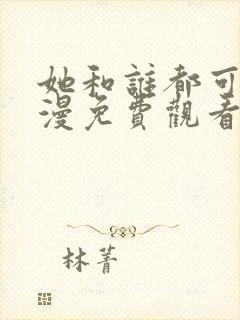 她和誰都可
漫免費觀看
林菁